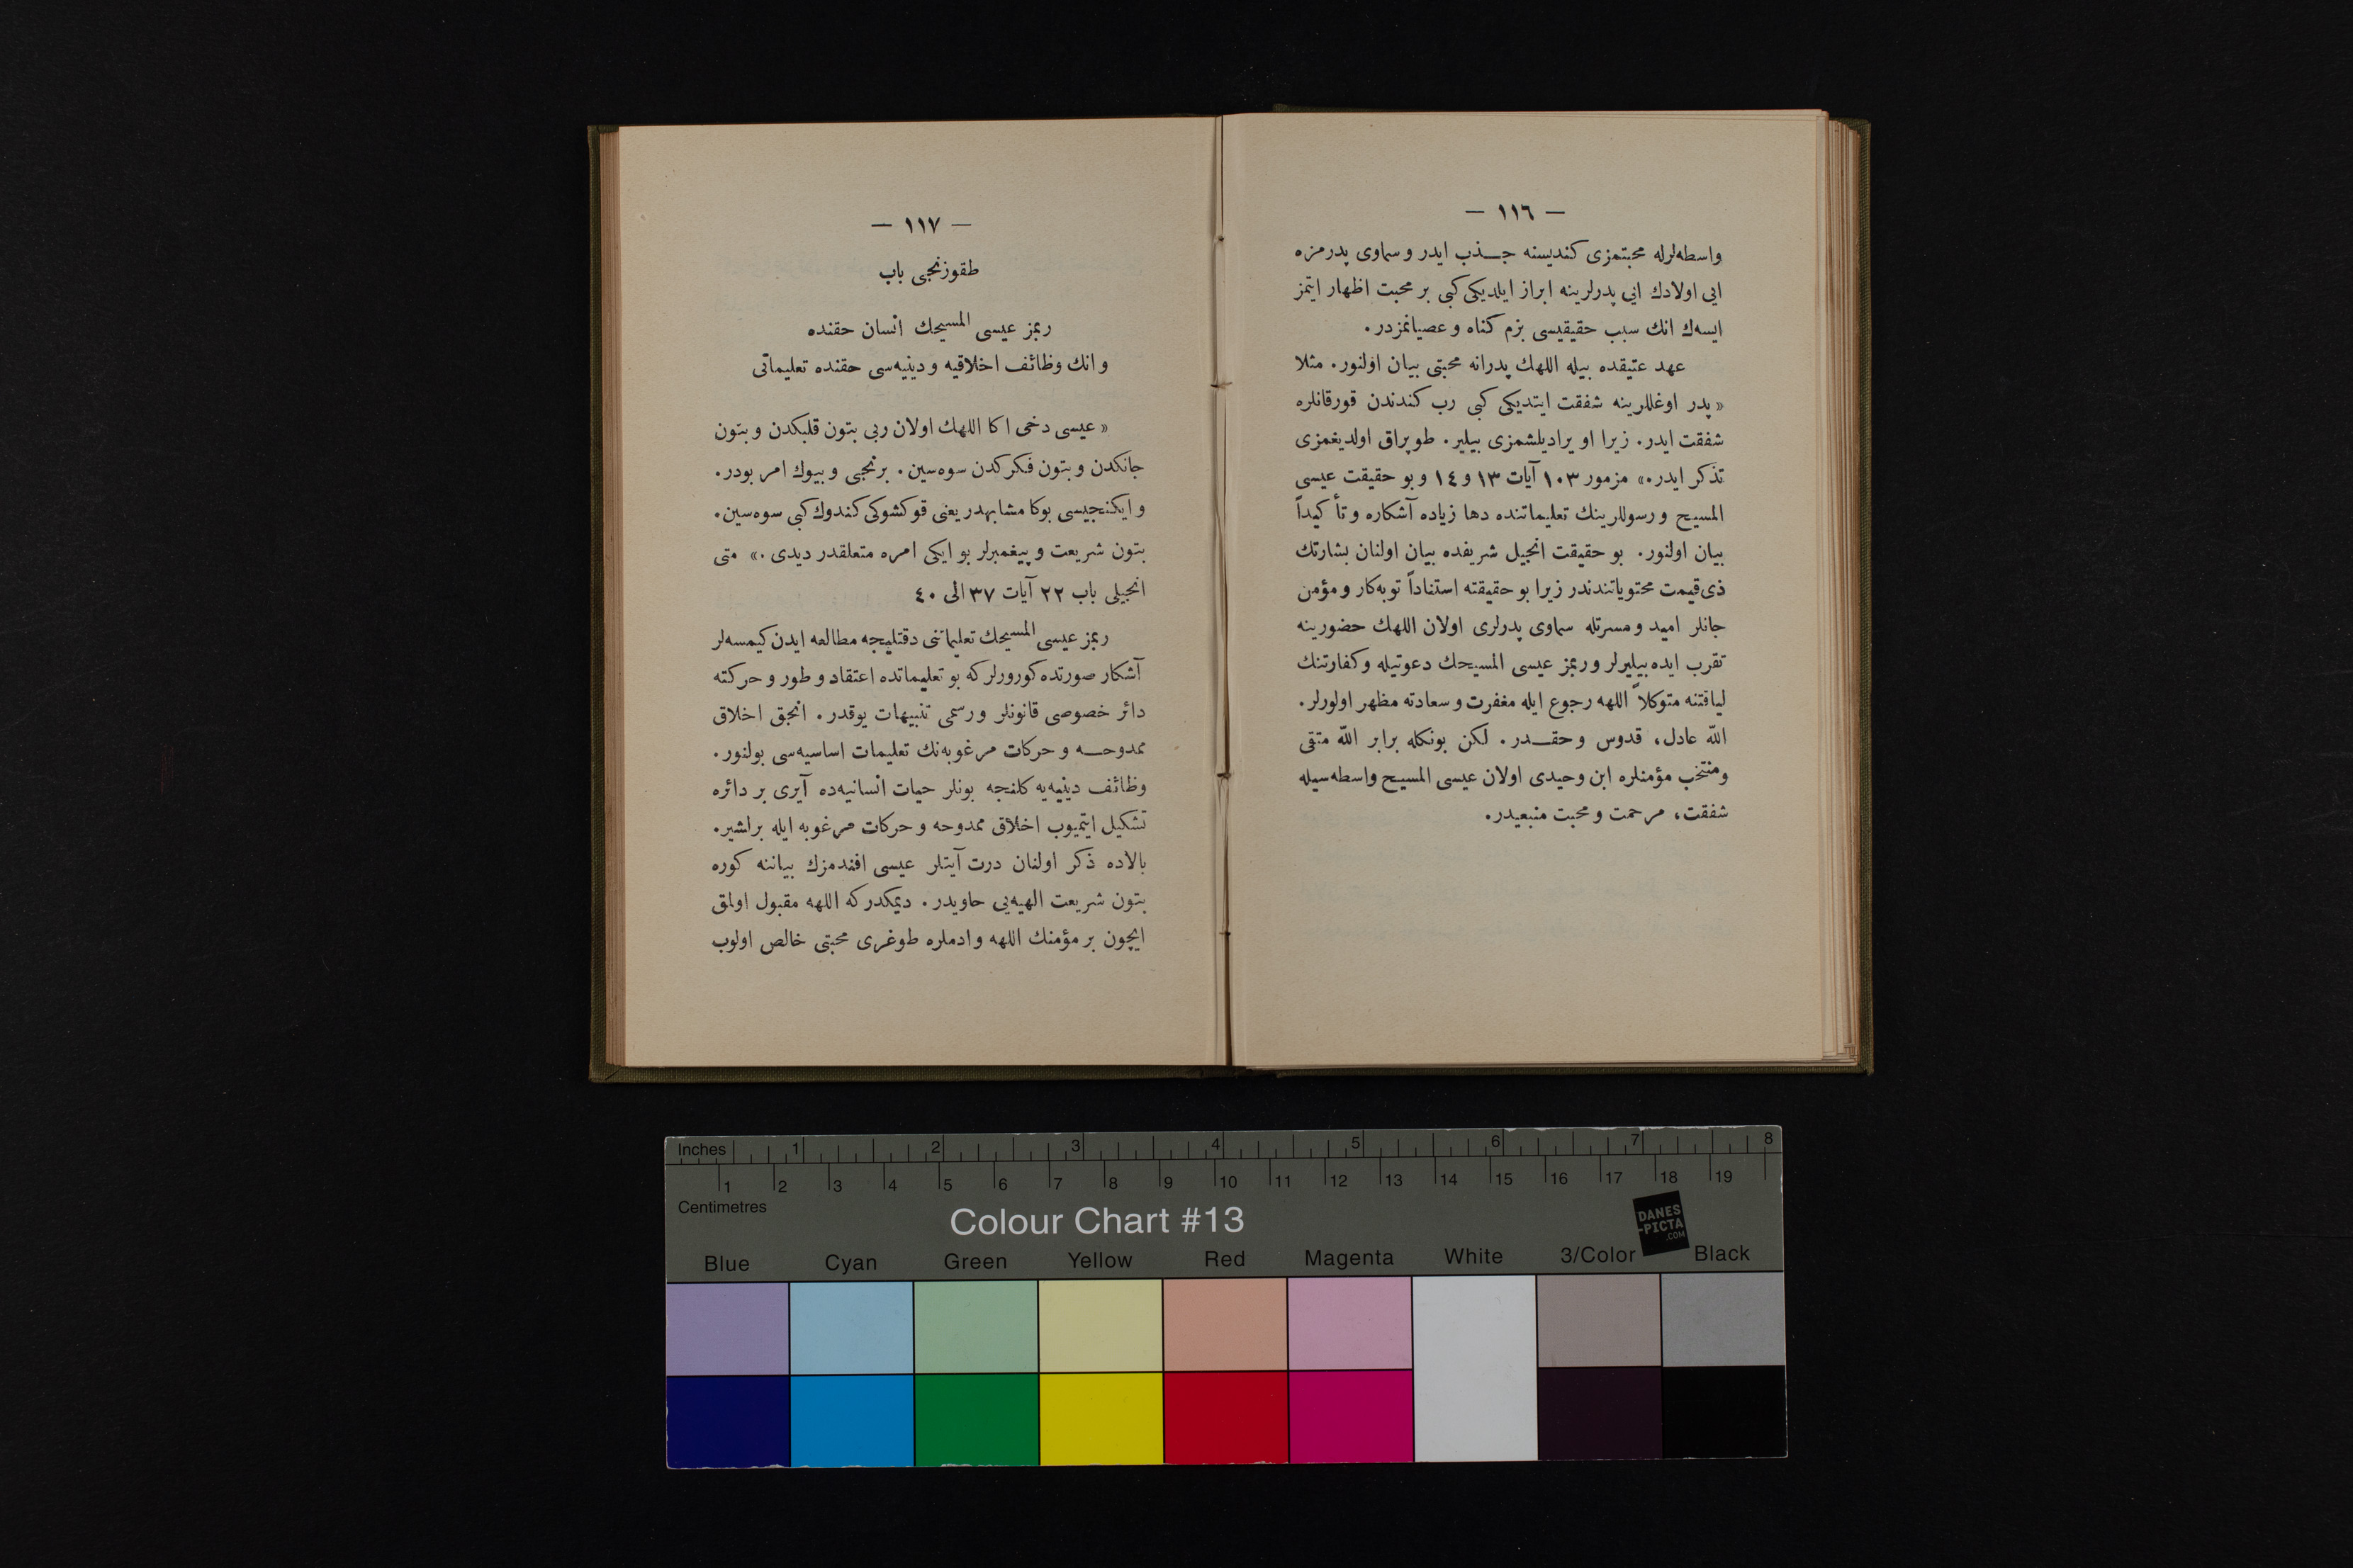 — ١١٦ —
واسطه‌لرله محبتمزی كندیسنه جـــذب ایدر و سماوی پدرمزه
ایی اولادك ایی پدرلرینه ابراز ایلدیكی كبی بر محبت اظهار ایتمز
ایسه‌ك انك سبب حقیقیسی بزم كناه و عصیانمزدر.
عهد عتیقده بیله اللهك پدرانه محبتی بیان اولنور. مثلا
« پدر اوغللرینه شفقت ایتدیكی كبی رب كندندن قورقانلره
شفقت ایدر. زیرا او یرادیلشمزی بیلیر. طوپراق اولدیغمزی
تذكر ایدر.» مزمور ١٠٣ آیات ١٣ و ١٤ و بو حقیقت عیسی
المسیح و رسوللرینك تعلیماتنده دها زیاده آشكاره و تأكیداً
بیان اولنور. بو حقیقت انجیل شریفده بیان اولنان بشارتك
ذی‌قیمت محتویاتندندر زیرا بو حقیقته استناداً توبه‌كار و مؤمن
جانلر امید و مسرتله سماوی پدرلری اولان اللهك حضورینه
تقرب ایده بیلیرلر و ربمز عیسی المسیحك دعوتیله و كفارتنك
لیاقتنه متوكلاً اللهه رجوع ایله مغفرت و سعادته مظهر اولورلر.
الله عادل، قدوس و حقـــدر. لكن بونكله برابر الله متقی
ومنتخب مؤمنلره ابن وحیدی اولان عیسی المسیح واسطه‌سیله
شفقت، مرحمت و محبت منبعیدر.
— ١١٧ —
طقوزنجی باب
ربمز عیسی المسیحك انسان حقنده
و انك وظائف اخلاقیه و دینیه‌سی حقنده تعلیماتی
« عیسی دخی اكا اللهك اولان ربی بتون قلبكدن و بتون
جانكدن و بتون فكركدن سوه‌سین. برنجی و بیوك امر بودر.
و ایكنجیسی بوكا مشابهدر یعنی قوكشوكی كندوك كبی سوه‌سین.
بتون شریعت و پیغمبرلر بو ایكی امره متعلقدر دیدی.» متی
انجیلی باب ٢٢ آیات ٣٧ الی ٤٠
ربمز عیسی المسیحك تعلیماتنی دقتلیجه مطالعه ایدن كیمسه‌لر
آشكار صورتده كورورلر كه بو تعلیماتده اعتقاد و طور و حركته
دائر خصوصی قانونلر و رسمی تنبیهات یوقدر. انجق اخلاق
ممدوحـــه و حركات مرغوبه‌نك تعلیمات اساسیه‌سی بولنور.
وظائف دینیه‌یه كلنجه بونلر حیات انسانیه‌ده آیری بر دائره
تشكیل ایتمیوب اخلاق ممدوحه و حركات مرغوبه ایله براشیر.
بالاده ذكر اولنان درت آیتلر عیسی افندمزك بیاننه كوره
بتون شریعت الهیه‌یی حاویدر. دیمكدر كه اللهه مقبول اولمق
ایچون بر مؤمنك اللهه و ادملره طوغری محبتی خالص اولوب
Inches 1 2 3 4 5 6 7 8
1 2 3 4 5 6 7 8 9 10 11 12 13 14 15 16 17 18 19
Centimetres
Colour Chart #13
DANES
-PICTA
.COM
Blue Cyan Green Yellow Red Magenta White 3/Color Black